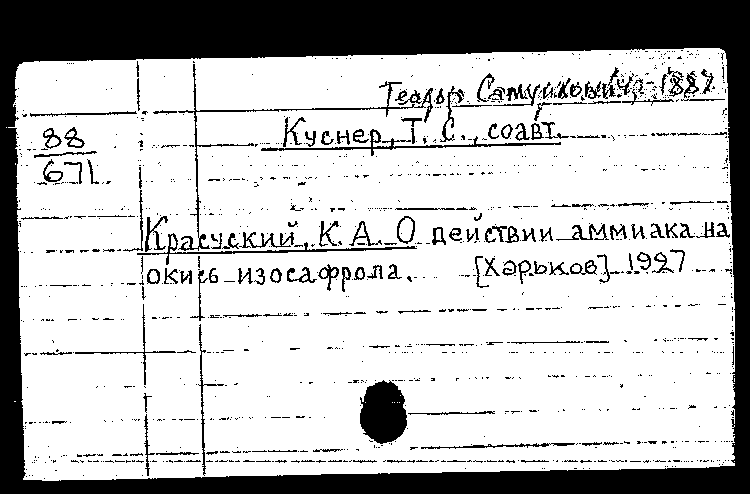 Теодор Самуилович, 1887
Куснер, Т. С., соавт.
88
671
Красуский, К. А. О действии аммиака на
окись изосафрола. [Харьков] 1927